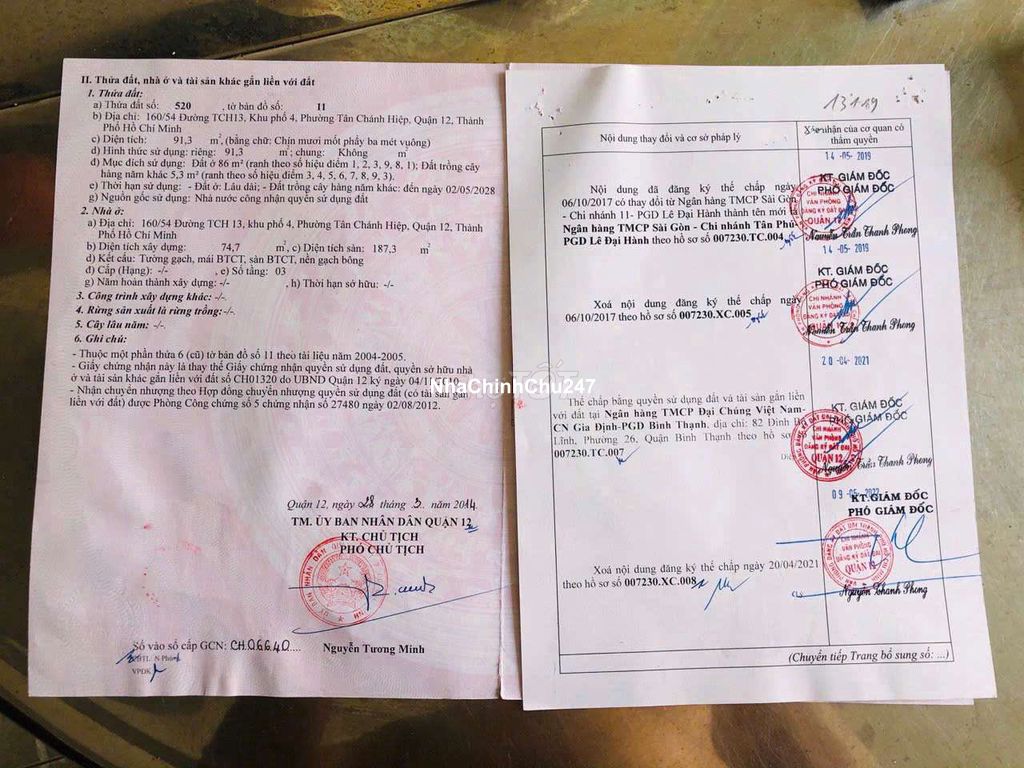 II. Thửa đất, nhà ở và tài sản khác gắn liền với đất
1. Thửa đất:
a) Thửa đất số: 520 , tờ bản đồ số: 11
b) Địa chỉ: 160/54 Đường TCH13, Khu phố 4, Phường Tân Chánh Hiệp, Quận 12, Thành
Phố Hồ Chí Minh
c) Diện tích: 91,3 m², (bằng chữ: Chín mươi mốt phẩy ba mét vuông)
d) Hình thức sử dụng: riêng: 91,3 m²; chung: Không m²
đ) Mục đích sử dụng: Đất ở 86 m² (ranh theo số hiệu điểm 1, 2, 3, 9, 8, 1); Đất trồng cây
hàng năm khác 5,3 m² (ranh theo số hiệu điểm 3, 4, 5, 6, 7, 8, 9, 3).
e) Thời hạn sử dụng: - Đất ở: Lâu dài; - Đất trồng cây hàng năm khác: đến ngày 02/05/2028
g) Nguồn gốc sử dụng: Nhà nước công nhận quyền sử dụng đất
2. Nhà ở:
a) Địa chỉ: 160/54 Đường TCH 13, khu phố 4, Phường Tân Chánh Hiệp, Quận 12, Thành
Phố Hồ Chí Minh
b) Diện tích xây dựng: 74,7 m², c) Diện tích sàn: 187,3 m²
d) Kết cấu: Tường gạch, mái BTCT, sàn BTCT, nền gạch bông
đ) Cấp (Hạng): -/- , e) Số tầng: 03
g) Năm hoàn thành xây dựng: -/- , h) Thời hạn sở hữu: -/-
3. Công trình xây dựng khác: -/-
4. Rừng sản xuất là rừng trồng: -/-.
5. Cây lâu năm: -/-.
6. Ghi chú:
- Thuộc một phần thửa 6 (cũ) tờ bản đồ số 11 theo tài liệu năm 2004-2005.
- Giấy chứng nhận này là thay thế Giấy chứng nhận quyền sử dụng đất, quyền sở hữu nhà
ở và tài sản khác gắn liền với đất số CH01320 do UBND Quận 12 ký ngày
- Nhận chuyển nhượng theo Hợp đồng chuyển nhượng quyền sử dụng đất (có tài sản gắn
liền với đất) được Phòng Công chứng số 5 chứng nhận số 27480 ngày 02/08/2012.
NhaChinhChu247
Quận 12, ngày 28 tháng 3. năm 2014
TM. ỦY BAN NHÂN DÂN QUẬN 12
KT. CHỦ TỊCH
PHÓ CHỦ TỊCH
Số vào sổ cấp GCN: CH06640....
Nguyễn Tương Minh
VPDK
13119
Nội dung thay đổi và cơ sở pháp lý
Xác nhận của cơ quan có
thẩm quyền
14 -05- 2019
KT. GIÁM ĐỐC
PHÓ GIÁM ĐỐC
Nội dung đã đăng ký thế chấp ngày
06/10/2017 có thay đổi từ Ngân hàng TMCP Sài Gòn
- Chi nhánh 11- PGD Lê Đại Hành thành tên mới
Ngân hàng TMCP Sài Gòn - Chi nhánh Tân Phú-
PGD Lê Đại Hành theo hồ sơ số 007230.TC.004
CHI NHÁNH
VĂN PHÒNG
ĐĂNG KÝ ĐẤT ĐAI
QUẬN 12
Nguyễn Trần Thanh Phong
14 -05- 2019
KT. GIÁM ĐỐC
PHÓ GIÁM ĐỐC
Xoá nội dung đăng ký thế chấp ngày
06/10/2017 theo hồ sơ số 007230.XC.005
CHI NHÁNH
VĂN PHÒNG
ĐĂNG KÝ ĐẤT ĐAI
QUẬN 12
Nguyễn Trần Thanh Phong
20 -04- 2021
Thế chấp bằng quyền sử dụng đất và tài sản gắn liền
với đất tại Ngân hàng TMCP Đại Chúng Việt Nam-
CN Gia Định-PGD Bình Thạnh, địa chỉ: 82 Đinh Bộ
Lĩnh, Phường 26, Quận Bình Thạnh theo hồ sơ
007230.TC.007
KT. GIÁM ĐỐC
PHÓ GIÁM ĐỐC
CHI NHÁNH
VĂN PHÒNG
ĐĂNG KÝ ĐẤT ĐAI
QUẬN 12
Nguyễn Trần Thanh Phong
09 -05- 2022
KT.GIÁM ĐỐC
PHÓ GIÁM ĐỐC
Xoá nội dung đăng ký thế chấp ngày 20/04/2021
theo hồ sơ số 007230.XC.008
CHI NHÁNH
VĂN PHÒNG
ĐĂNG KÝ ĐẤT ĐAI
QUẬN 12
Nguyễn Thanh Phong
(Chuyển tiếp Trang bổ sung số: ...)